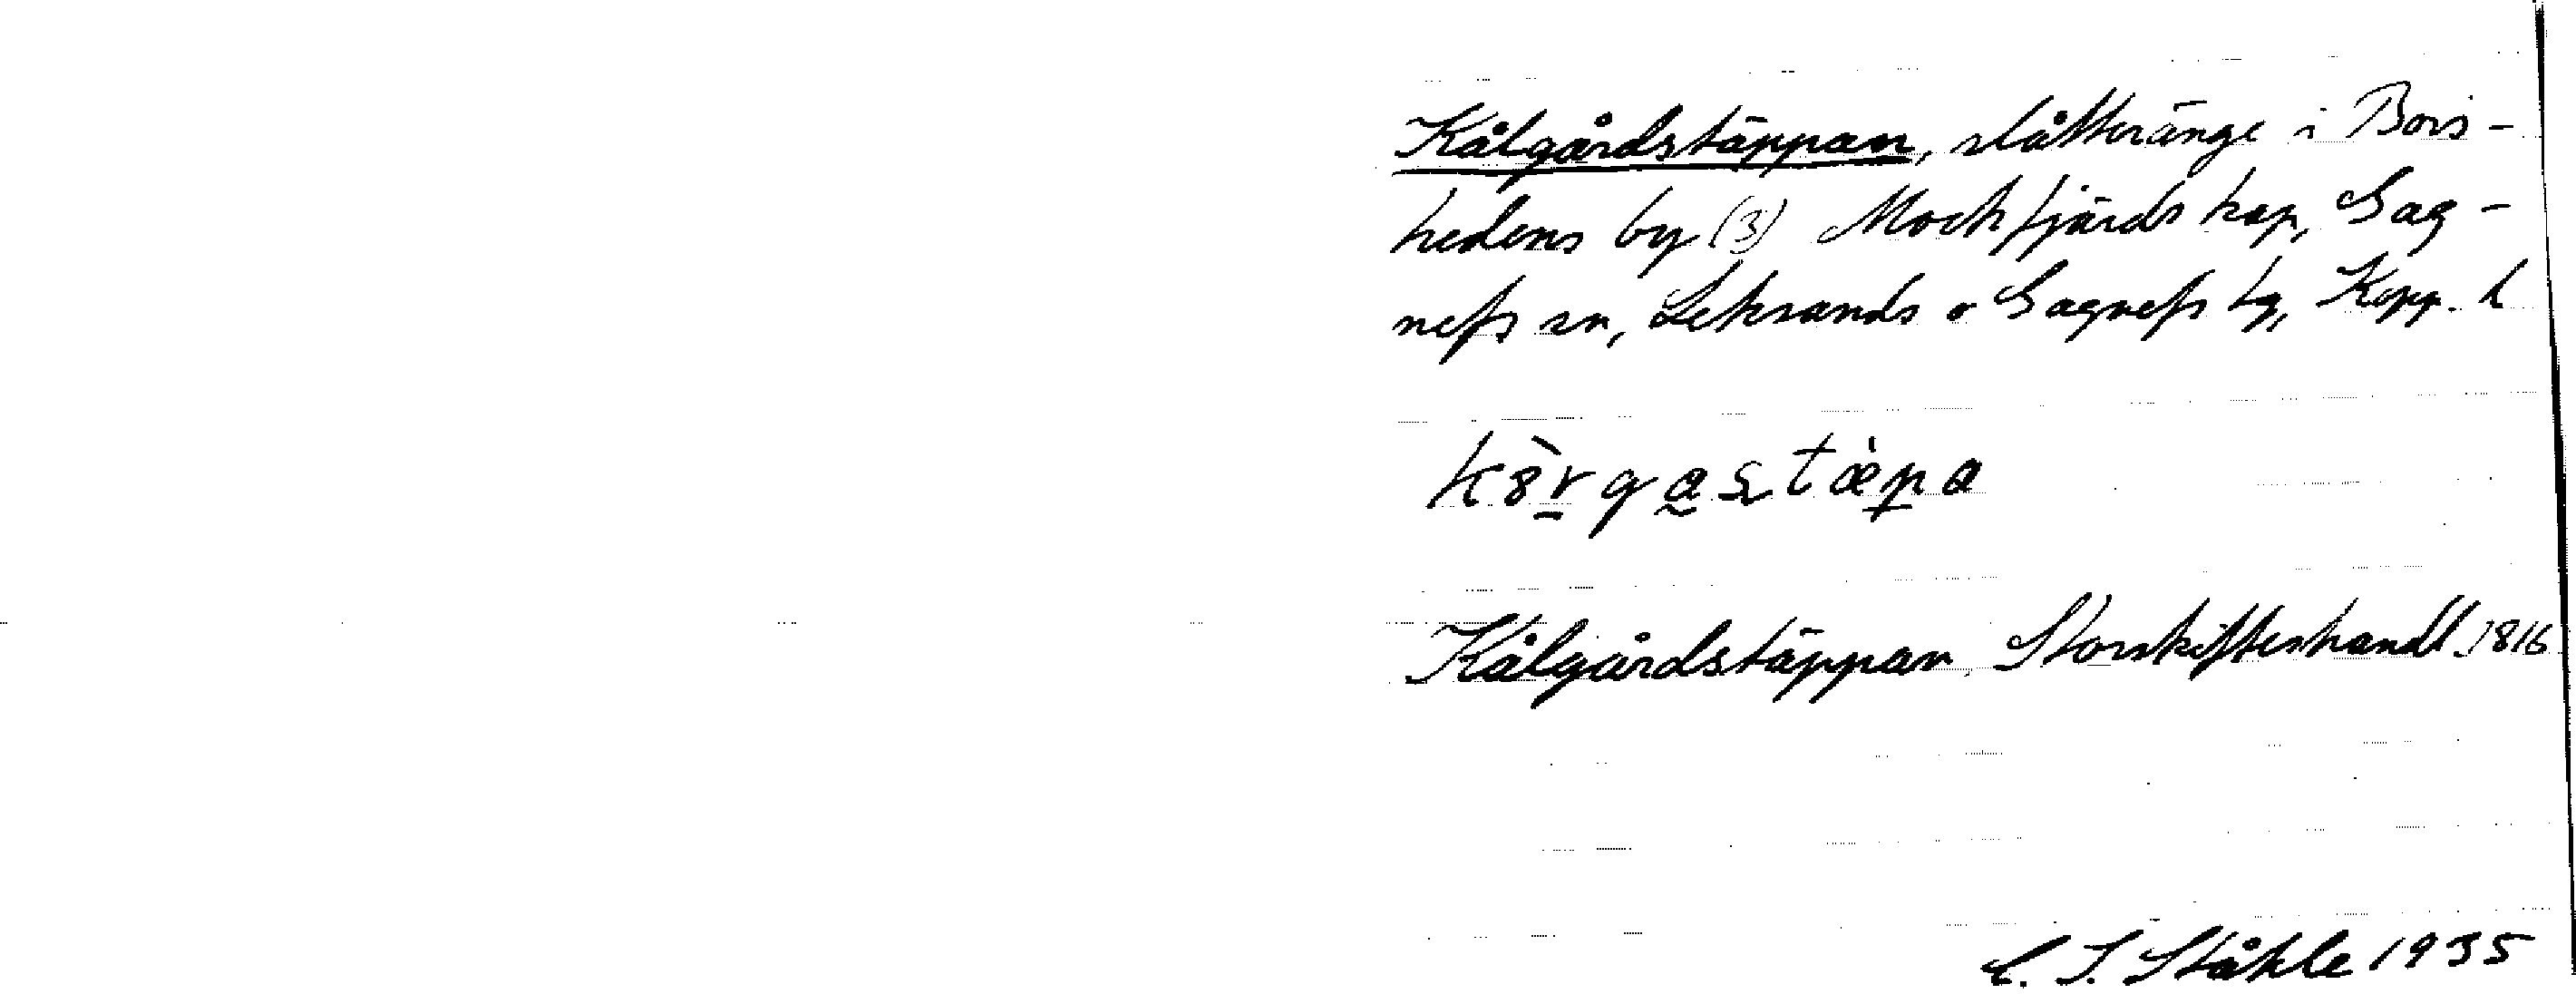 Kålgårdstäppan, slåtteränge i Bors-
hedens by (3) Mockfjärds kap, Gag-
nefs sn, Leksands o Gagnefs tg, Kopp. l
Kålgårdstäppan, Storskifteshandl. 1816
C. I. Ståhle 1935